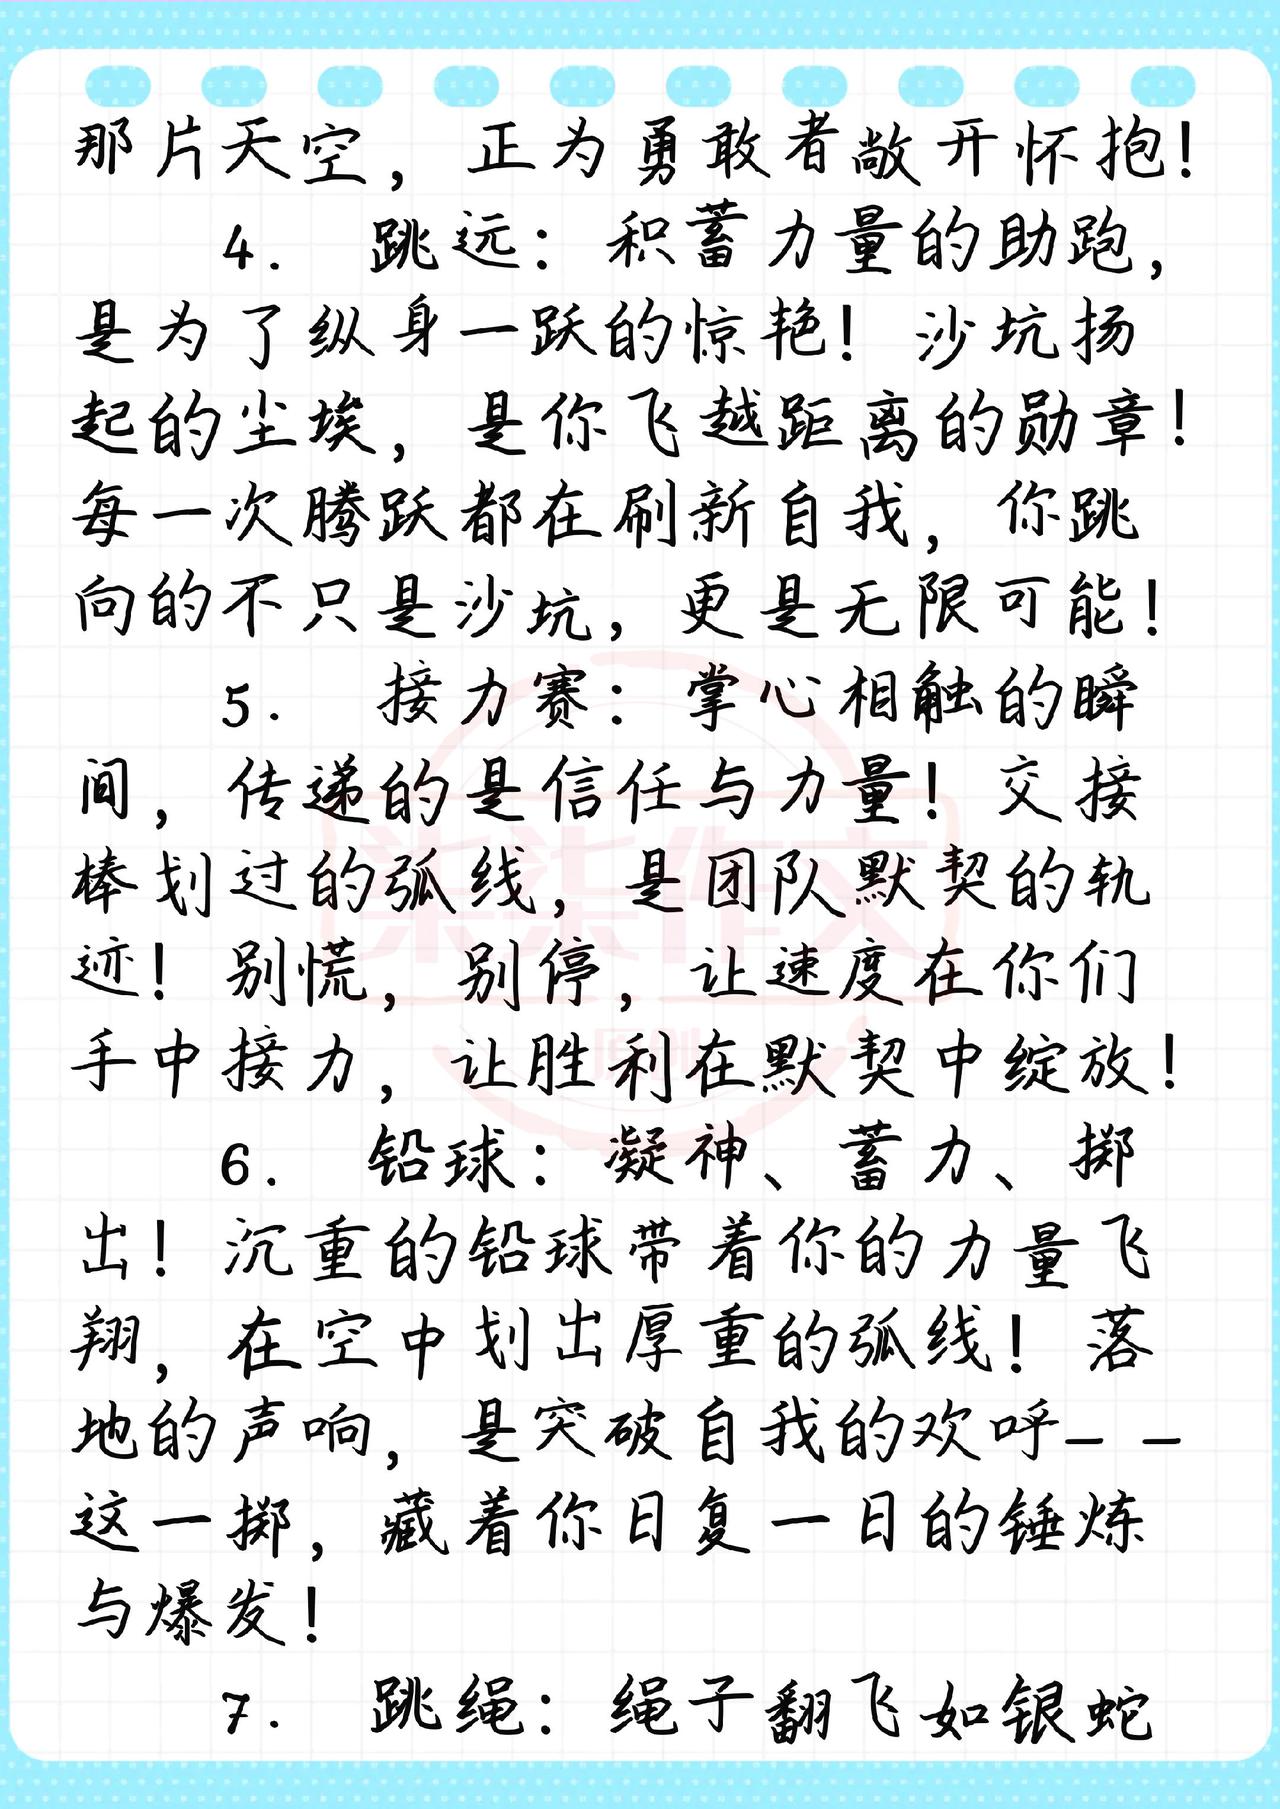 那片天空，正为勇敢者敞开怀抱！
4. 跳远：积蓄力量的助跑，
是为了纵身一跃的惊艳！沙坑扬
起的尘埃，是你飞越距离的勋章！
每一次腾跃都在刷新自我，你跳
向的不只是沙坑，更是无限可能！
5. 接力赛：掌心相触的瞬
间，传递的是信任与力量！交接
棒划过的弧线，是团队默契的轨
迹！别慌，别停，让速度在你们
手中接力，让胜利在默契中绽放！
6. 铅球：凝神、蓄力、掷
出！沉重的铅球带着你的力量飞
翔，在空中划出厚重的弧线！落
地的声响，是突破自我的欢呼——
这一掷，藏着你日复一日的锤炼
与爆发！
7. 跳绳：绳子翻飞如银蛇
柒柒作文